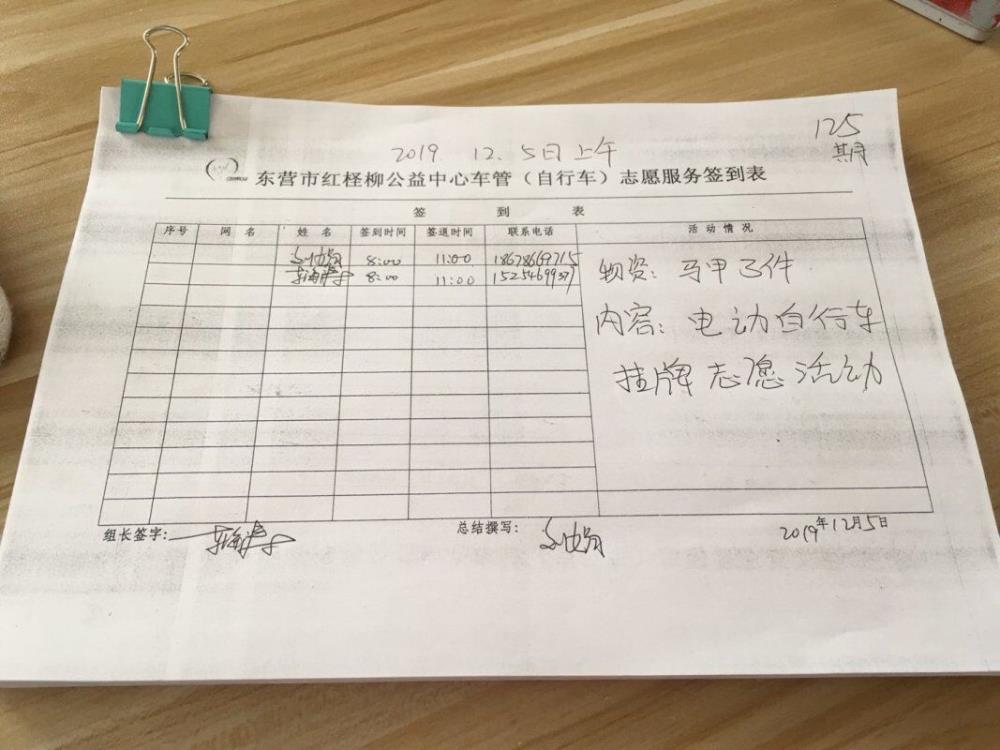 125
期
2019 12.5日上午
东营市红柽柳公益中心车管（自行车）志愿服务签到表
签 到 表
序号 网名 姓名 签到时间 签退时间 联系电话 活动情况
8:00 11:00 18678669715
8:00 11:00
物资：马甲3件
内容：电动自行车
挂牌志愿活动
组长签字： 总结撰写： 2019年12月5日